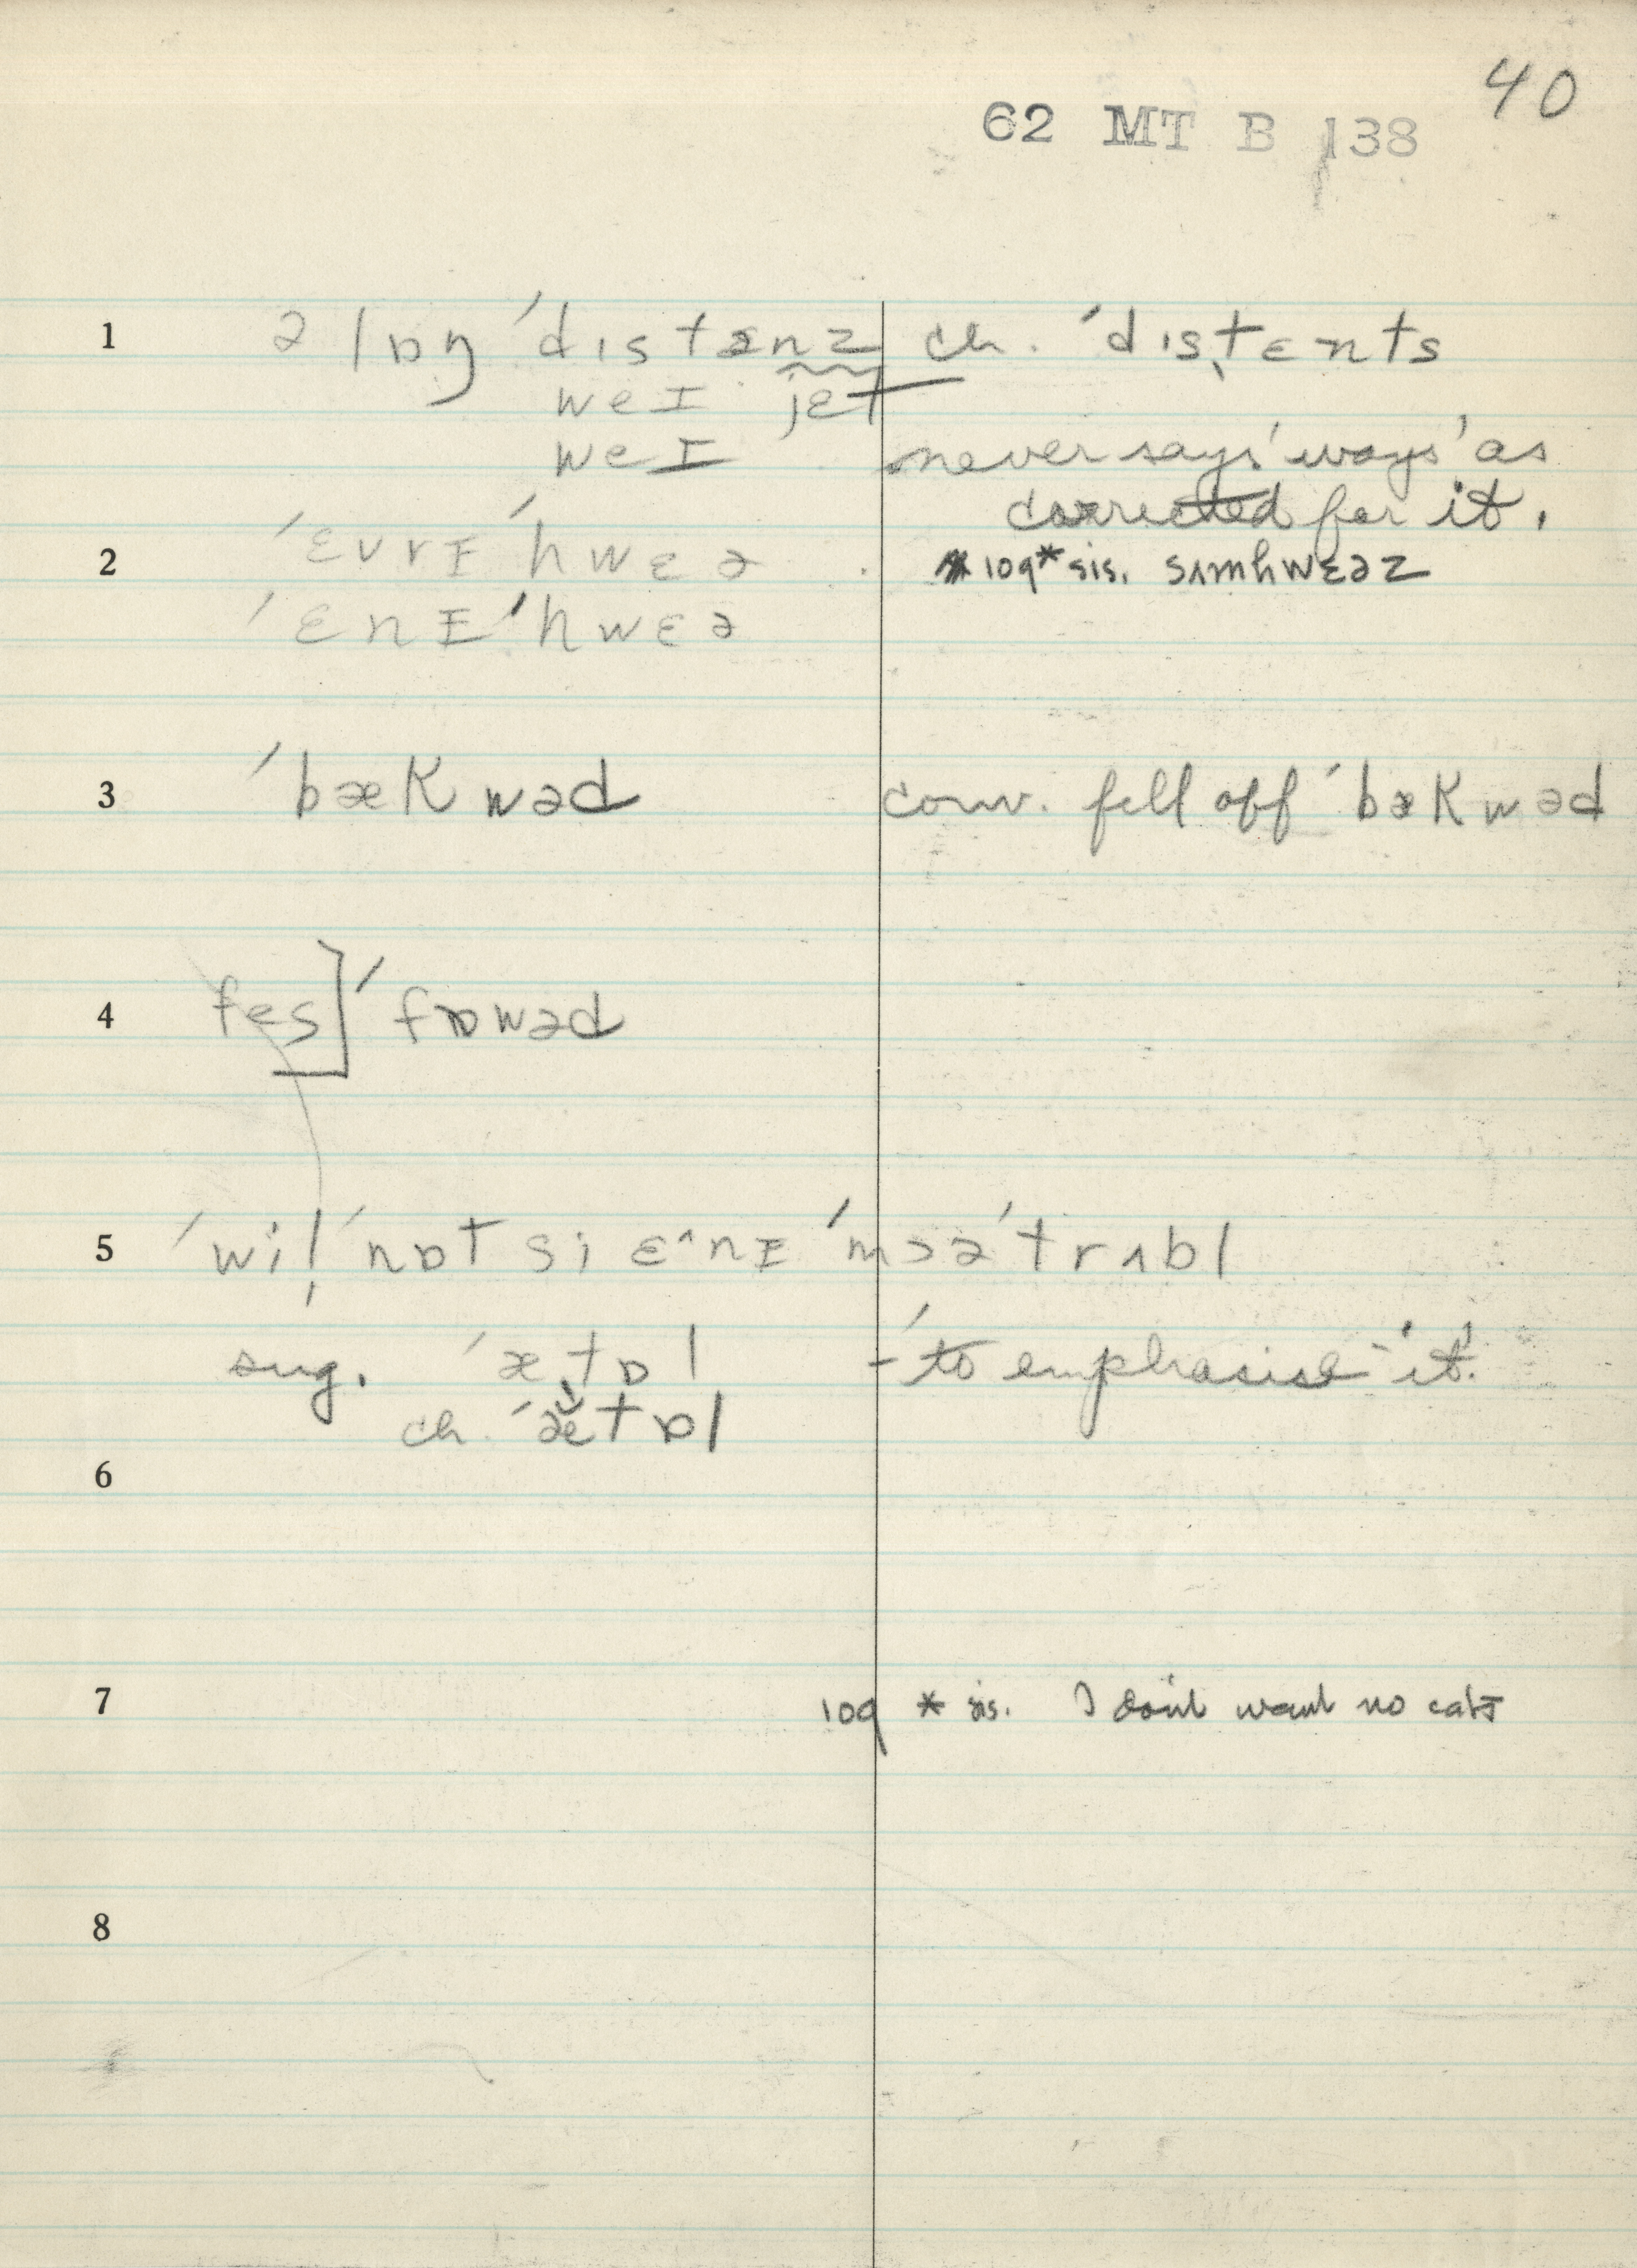 40
62 MT B 138
1 ə lɒŋ ˈdɪstənz ch. ˈdɪstɛnts
weɪ jɛt
weɪ never says 'ways' as
corrected for it.
2 ˈɛvrɪ ˈhwɛə * 109* sis. sʌmhwɛəz
ˈɛnɪ ˈhwɛə
3 ˈbækwəd conv. fell off ˈbækwəd
4 fes] ˈfɒwəd
5 ˈwil ˈnɒt si ɛ^nɪ ˈmɔə ˈtrʌbl
sug. ˈætɒl - ˈto emphasise 'it'.
ch. ˈætɒl
6
7 109 * sis. I don't want no cats
8